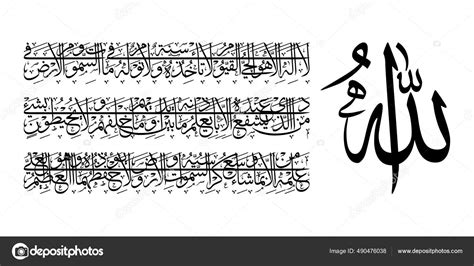 الله
لا اله الا هو الحي القيوم لا تأخذه سنة ولا نوم له ما في السموات وما في الارض
من ذا الذي يشفع عنده الا باذنه يعلم ما بين ايديهم وما خلفهم ولا يحيطون بشيء
من علمه الا بما شاء وسع كرسيه السموات والارض ولا يؤده حفظهما وهو العلي العظيم
depositphotos
Image ID: 490476038 www.depositphotos.com